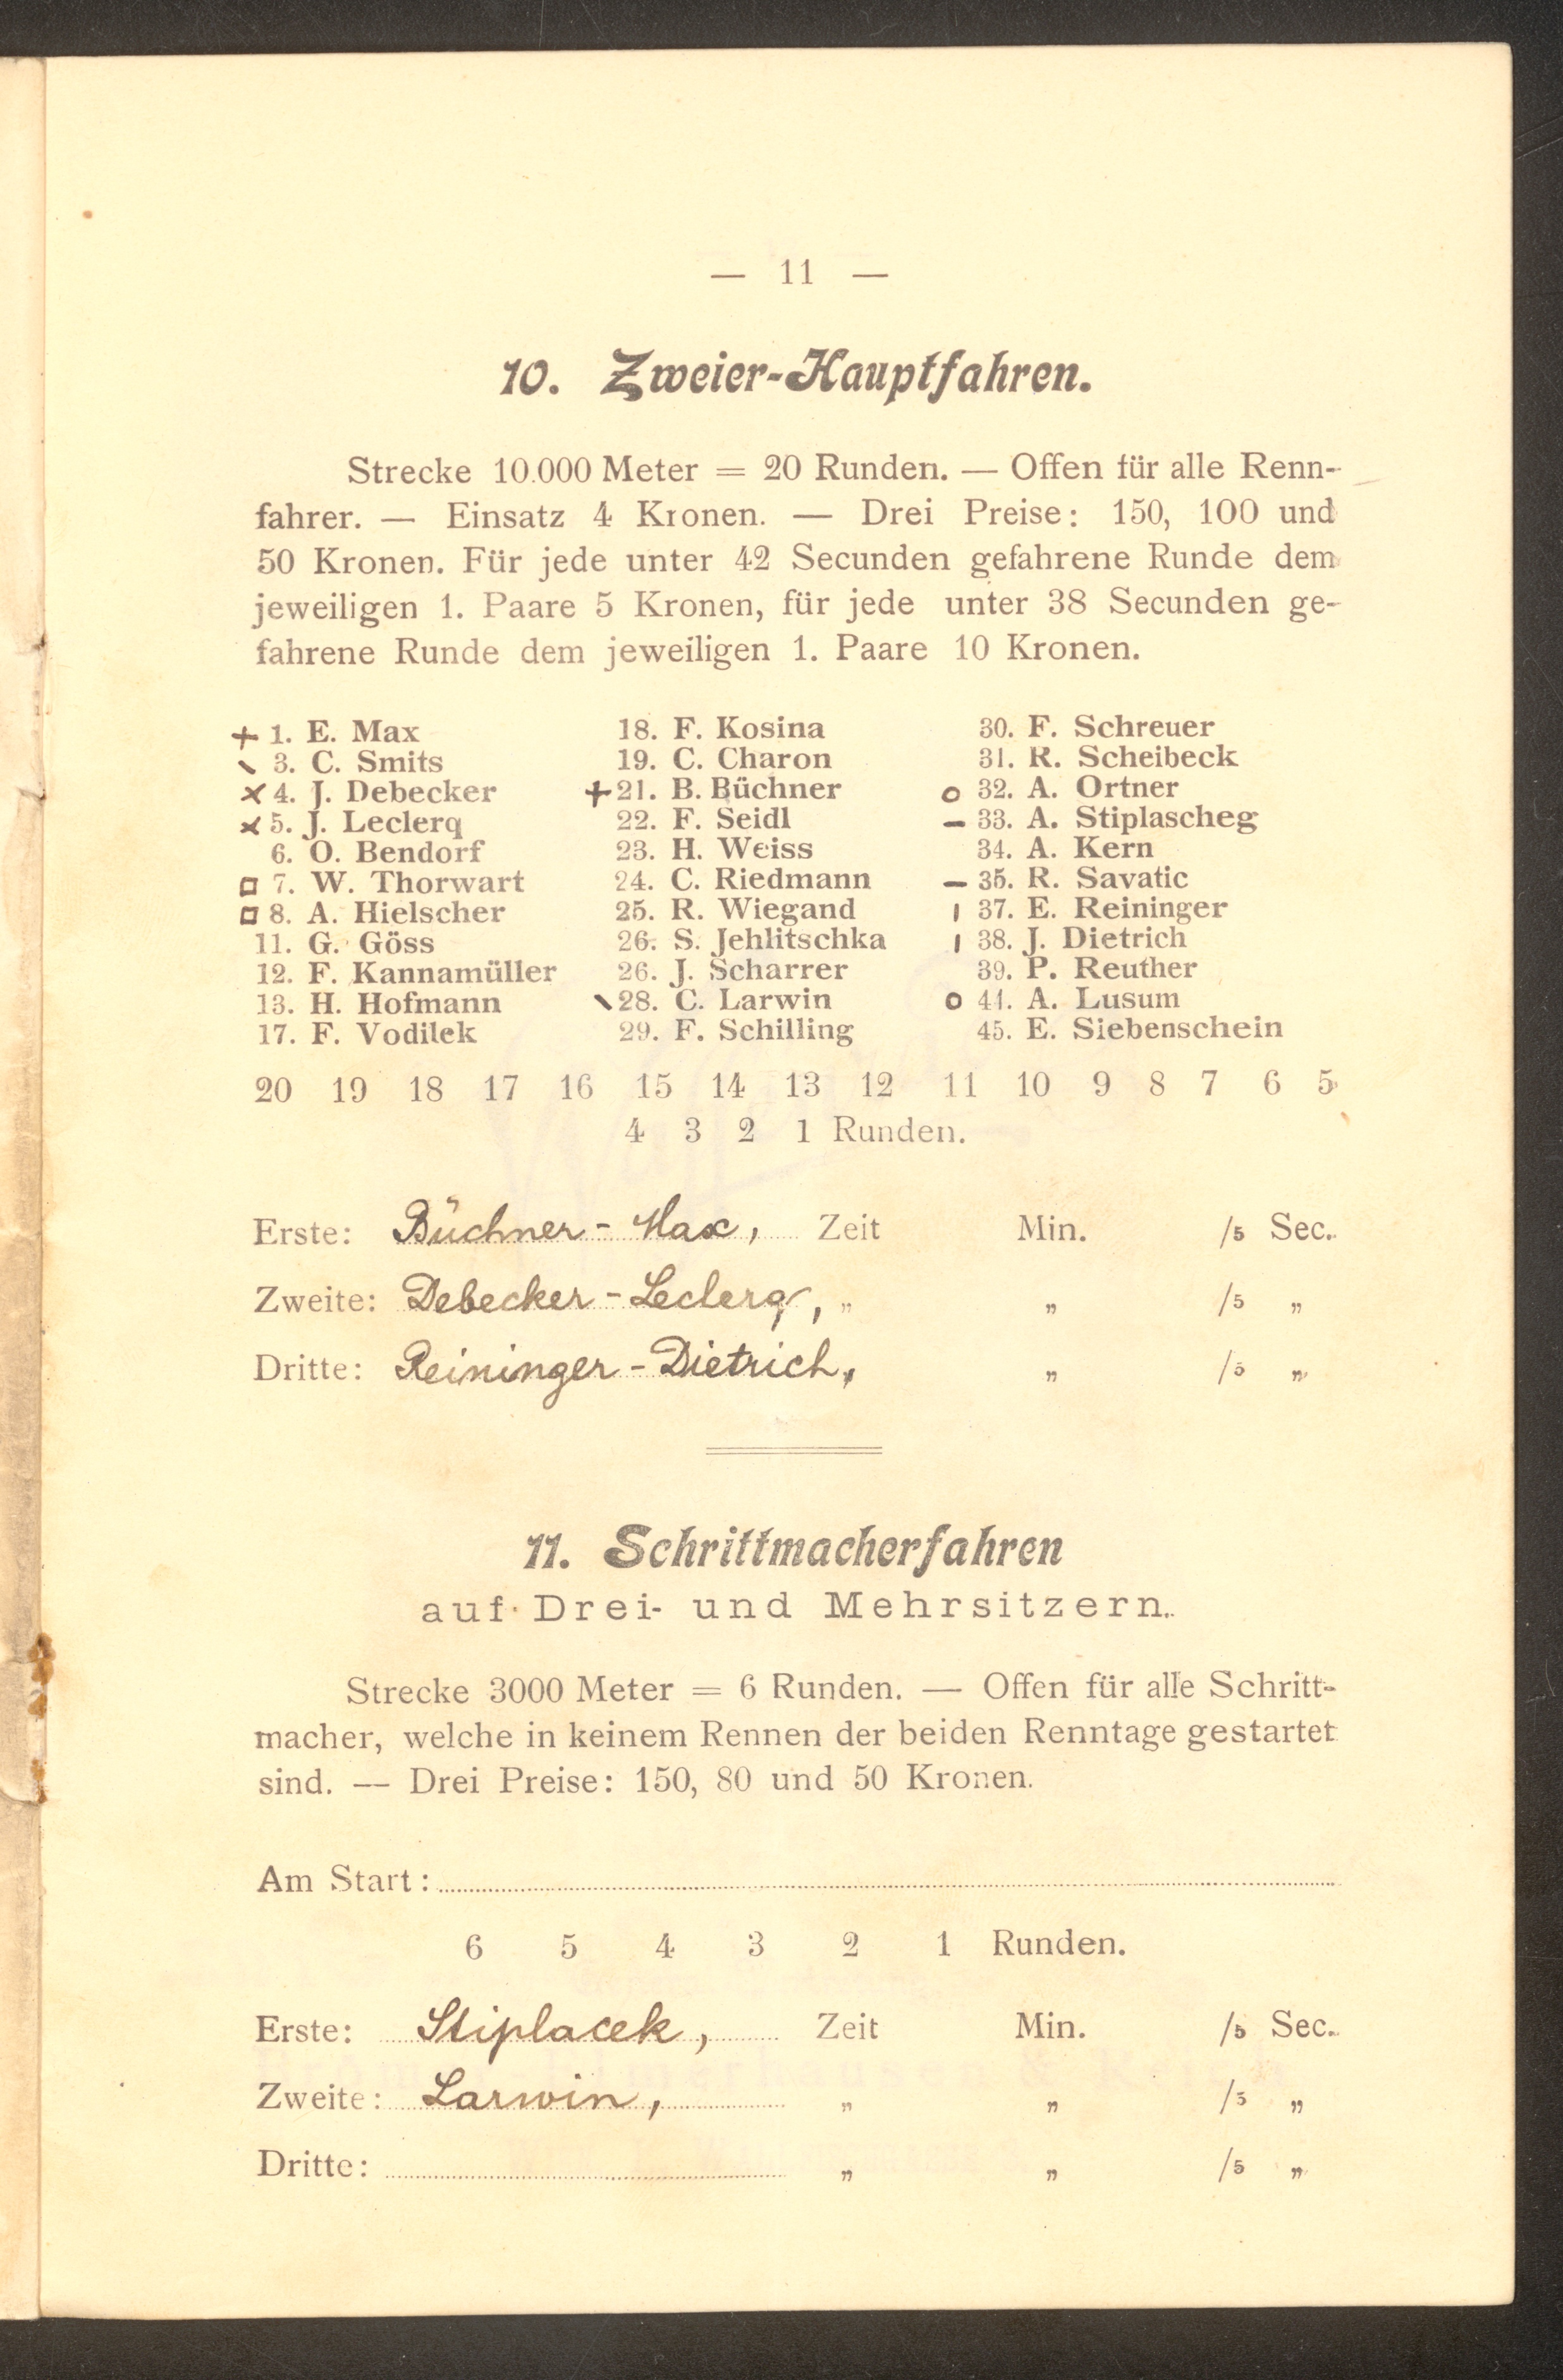 — 11 —
10. Zweier-Hauptfahren.
Strecke 10.000 Meter = 20 Runden. — Offen für alle Renn-
fahrer. — Einsatz 4 Kronen. — Drei Preise: 150, 100 und
50 Kronen. Für jede unter 42 Secunden gefahrene Runde dem
jeweiligen 1. Paare 5 Kronen, für jede unter 38 Secunden ge-
fahrene Runde dem jeweiligen 1. Paare 10 Kronen.
+ 1. E. Max
\ 3. C. Smits
× 4. J. Debecker
× 5. J. Leclerq
6. O. Bendorf
□ 7. W. Thorwart
□ 8. A. Hielscher
11. G. Göss
12. F. Kannamüller
13. H. Hofmann
17. F. Vodilek
18. F. Kosina
19. C. Charon
+ 21. B. Büchner
22. F. Seidl
23. H. Weiss
24. C. Riedmann
25. R. Wiegand
26. S. Jehlitschka
26. J. Scharrer
\ 28. C. Larwin
29. F. Schilling
30. F. Schreuer
31. R. Scheibeck
o 32. A. Ortner
– 33. A. Stiplascheg
34. A. Kern
– 35. R. Savatic
| 37. E. Reininger
| 38. J. Dietrich
39. P. Reuther
o 41. A. Lusum
45. E. Siebenschein
20 19 18 17 16 15 14 13 12 11 10 9 8 7 6 5
4 3 2 1 Runden.
Erste: Büchner - Max, Zeit Min. /5 Sec.
Zweite: Debecker - Leclerq, „ „ /5 „
Dritte: Reininger - Dietrich, „ /5 „
11. Schrittmacherfahren
auf Drei- und Mehrsitzern.
Strecke 3000 Meter = 6 Runden. — Offen für alle Schritt-
macher, welche in keinem Rennen der beiden Renntage gestartet
sind. — Drei Preise: 150, 80 und 50 Kronen.
Am Start:
6 5 4 3 2 1 Runden.
Erste: Stiplacek, Zeit Min. /5 Sec.
Zweite: Larwin, „ „ /5 „
Dritte: „ „ /5 „